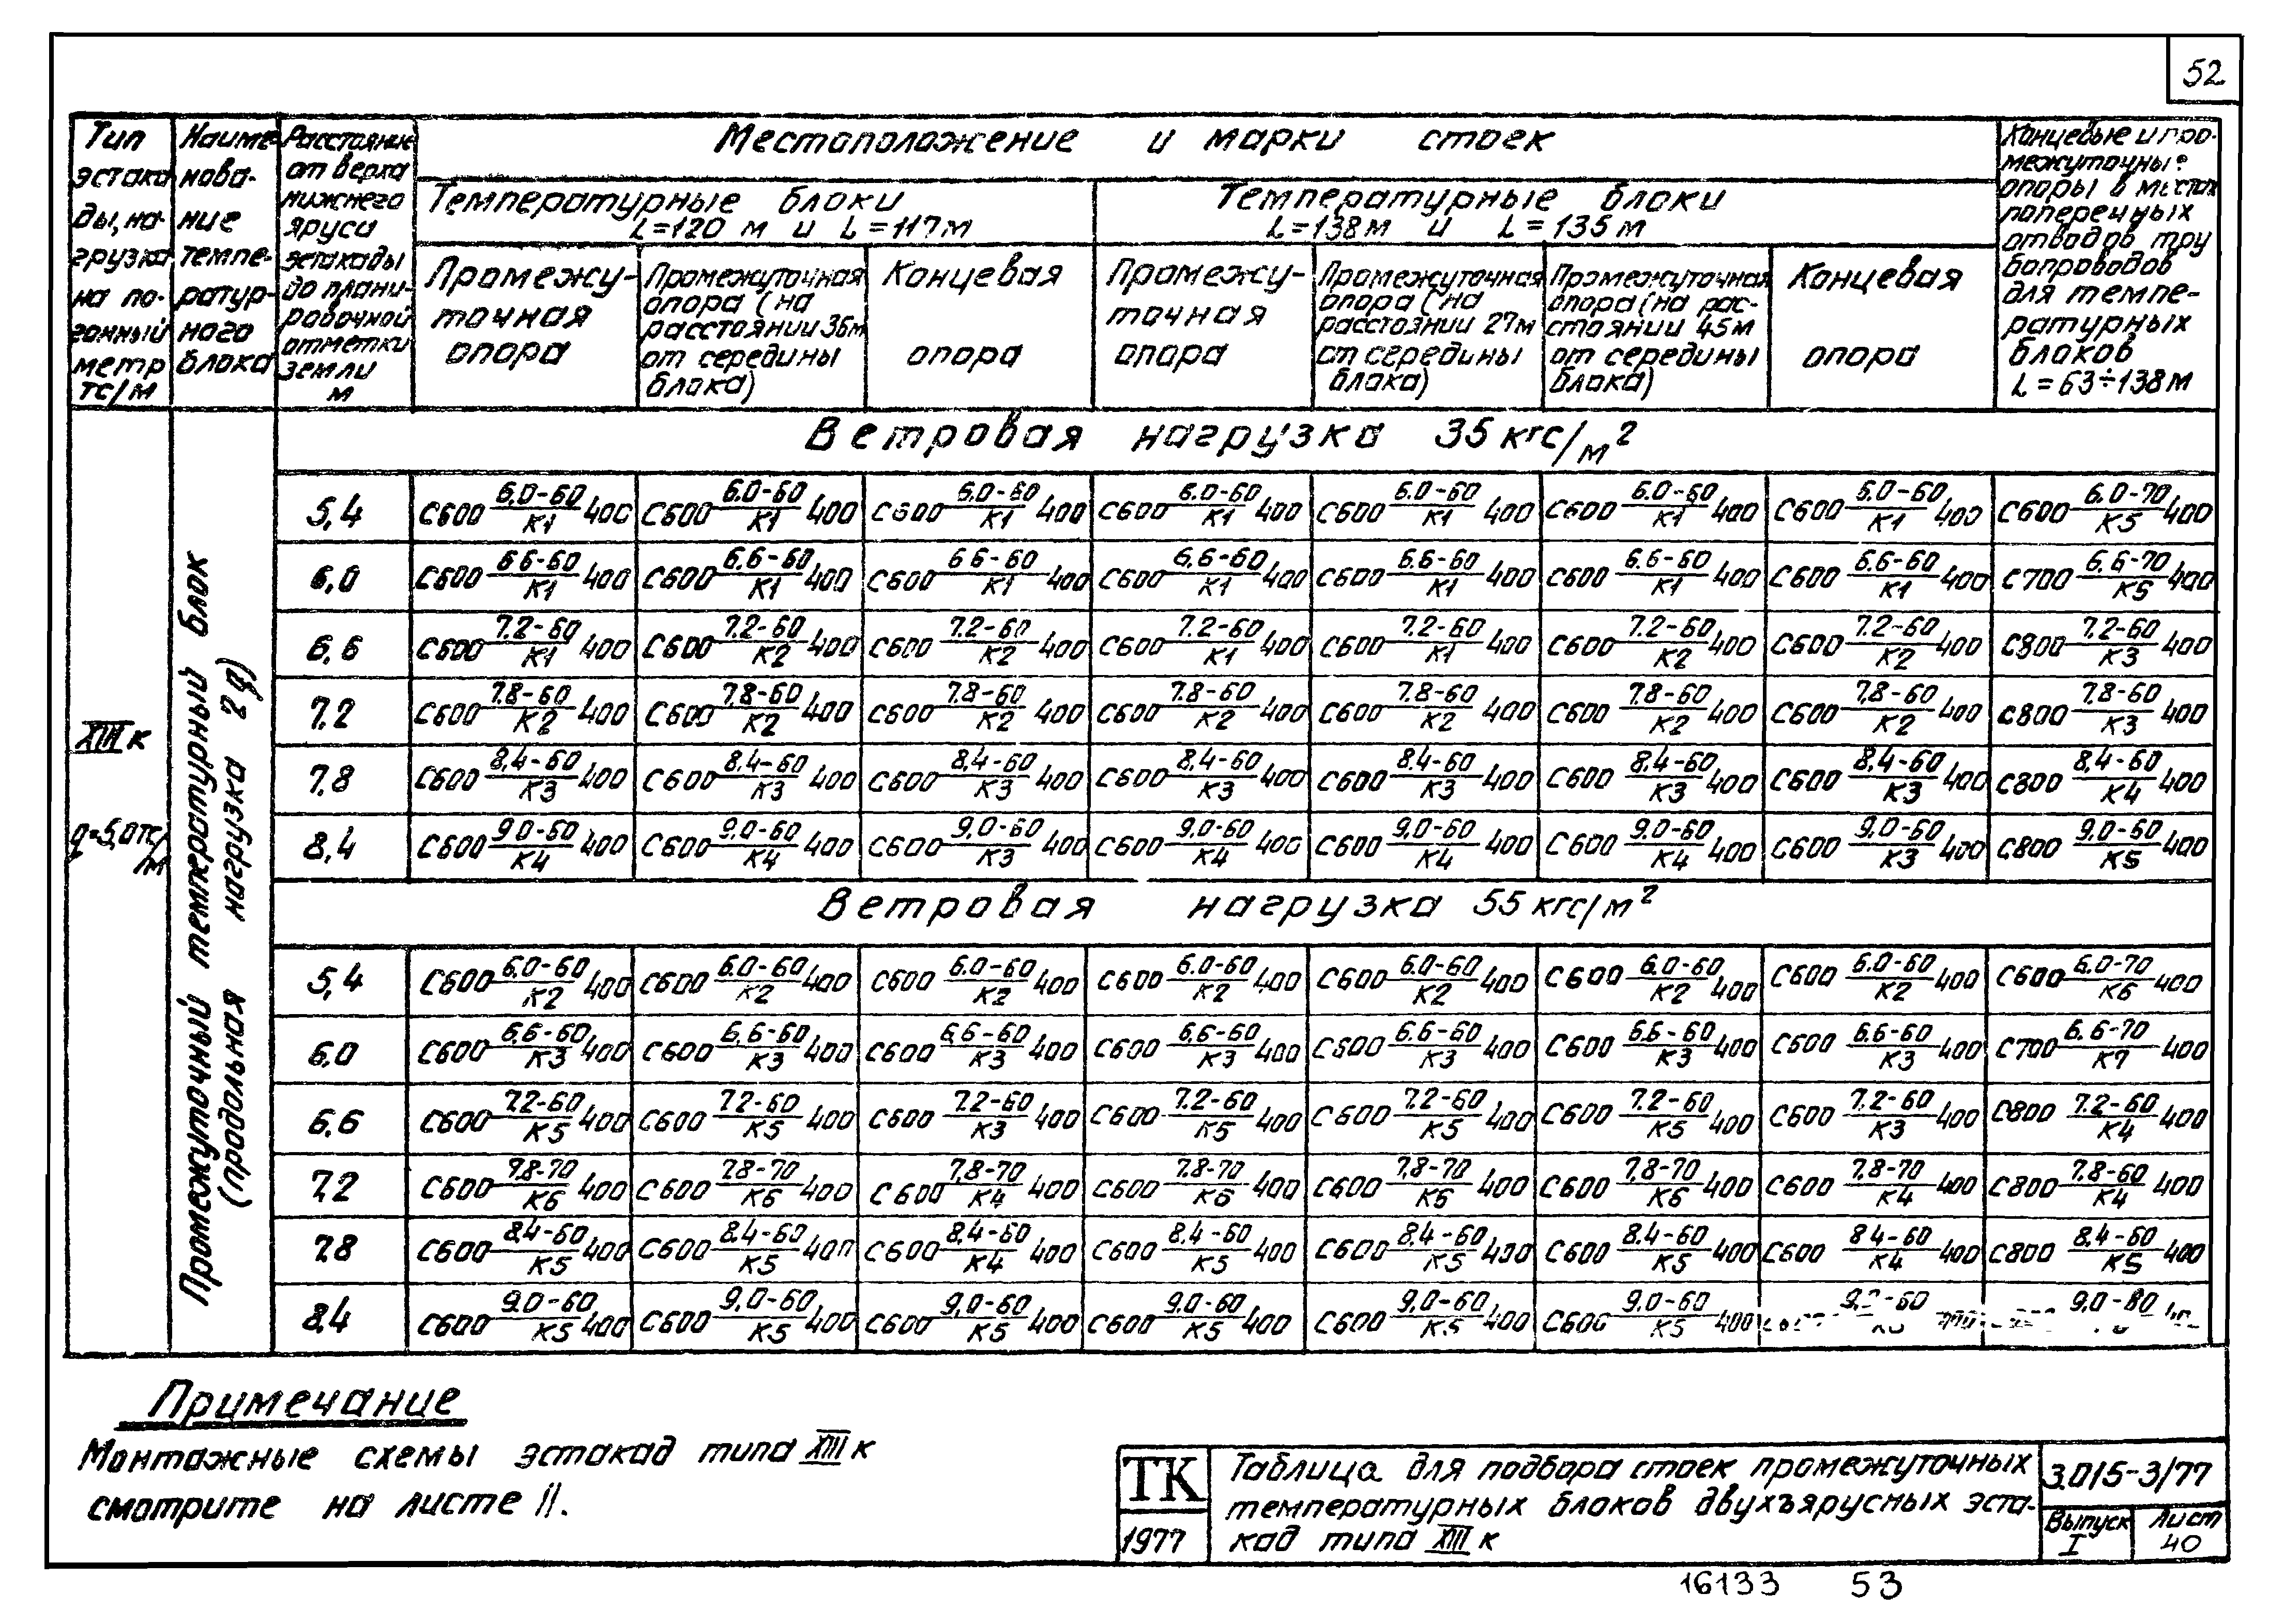 52
Тип эстакады, нагрузка на погонный метр тс/м
Наименование температурного блока
Расстояние от верха нижнего яруса эстакады до планировочной отметки земли м
Местоположение и марки стоек
Температурные блоки L=120 м и L=117м
Температурные блоки L=138м и L=135м
Концевые и промежуточные опоры в местах поперечных отводов трубопроводов для температурных блоков L=63÷138м
Промежуточная опора
Промежуточная опора (на расстоянии 36м от середины блока)
Концевая опора
Промежуточная опора
Промежуточная опора (на расстоянии 27м от середины блока)
Промежуточная опора (на расстоянии 45м от середины блока)
Концевая опора
XIIIк
q=5,0тс/м
Промежуточный температурный блок (продольная нагрузка 2q)
Ветровая нагрузка 35кгс/м²
5,4 С600 6.0-60/К1 400 С600 6.0-60/К1 400 С600 6.0-60/К1 400 С600 6.0-60/К1 400 С600 6.0-60/К1 400 С600 6.0-60/К1 400 С600 6.0-60/К1 400 С600 6.0-70/К5 400
6,0 С600 6.6-60/К1 400 С600 6.6-60/К1 400 С600 6.6-60/К1 400 С600 6.6-60/К1 400 С600 6.6-60/К1 400 С600 6.6-60/К1 400 С600 6.6-60/К1 400 С700 6.6-70/К5 400
6,6 С600 7.2-60/К1 400 С600 7.2-60/К2 400 С600 7.2-60/К2 400 С600 7.2-60/К1 400 С600 7.2-60/К1 400 С600 7.2-60/К2 400 С600 7.2-60/К2 400 С800 7.2-60/К3 400
7,2 С600 7.8-60/К2 400 С600 7.8-60/К2 400 С600 7.8-60/К2 400 С600 7.8-60/К2 400 С600 7.8-60/К2 400 С600 7.8-60/К2 400 С600 7.8-60/К2 400 С800 7.8-60/К3 400
7,8 С600 8,4-60/К3 400 С600 8,4-60/К3 400 С600 8,4-60/К3 400 С600 8,4-60/К3 400 С600 8,4-60/К3 400 С600 8,4-60/К3 400 С600 8,4-60/К3 400 С800 8,4-60/К4 400
8,4 С600 9.0-60/К4 400 С600 9.0-60/К4 400 С600 9.0-60/К3 400 С600 9.0-60/К4 400 С600 9.0-60/К4 400 С600 9.0-60/К4 400 С600 9.0-60/К3 400 С800 9.0-60/К5 400
Ветровая нагрузка 55кгс/м²
5,4 С600 6.0-60/К2 400 С600 6.0-60/К2 400 С600 6.0-60/К2 400 С600 6.0-60/К2 400 С600 6.0-60/К2 400 С600 6.0-60/К2 400 С600 6.0-60/К2 400 С600 6.0-70/К6 400
6,0 С600 6.6-60/К3 400 С600 6.6-60/К3 400 С600 6.6-60/К3 400 С600 6.6-60/К3 400 С600 6.6-60/К3 400 С600 6.6-60/К3 400 С600 6.6-60/К3 400 С700 6.6-70/К7 400
6,6 С600 7.2-60/К5 400 С600 7.2-60/К5 400 С600 7.2-60/К3 400 С600 7.2-60/К5 400 С600 7.2-60/К5 400 С600 7.2-60/К5 400 С600 7.2-60/К3 400 С800 7.2-60/К4 400
7,2 С600 7.8-70/К6 400 С600 7.8-70/К6 400 С600 7.8-70/К4 400 С600 7.8-70/К6 400 С600 7.8-70/К6 400 С600 7.8-70/К6 400 С600 7.8-70/К4 400 С800 7.8-60/К4 400
7,8 С600 8,4-60/К5 400 С600 8,4-60/К5 400 С600 8,4-60/К4 400 С600 8,4-60/К5 400 С600 8,4-60/К5 400 С600 8,4-60/К5 400 С600 8,4-60/К4 400 С800 8,4-60/К5 400
8,4 С600 9.0-60/К5 400 С600 9.0-60/К5 400 С600 9.0-60/К5 400 С600 9.0-60/К5 400 С600 9.0-60/К5 400 С600 9.0-60/К5 400 9.0-80
Примечание
Монтажные схемы эстакад типа XIIIк
смотрите на листе 11.
ТК
1977
Таблица для подбора стоек промежуточных
температурных блоков двухъярусных эста-
кад типа XIIIк
3.015-3/77
Выпуск I
Лист 40
16133 53